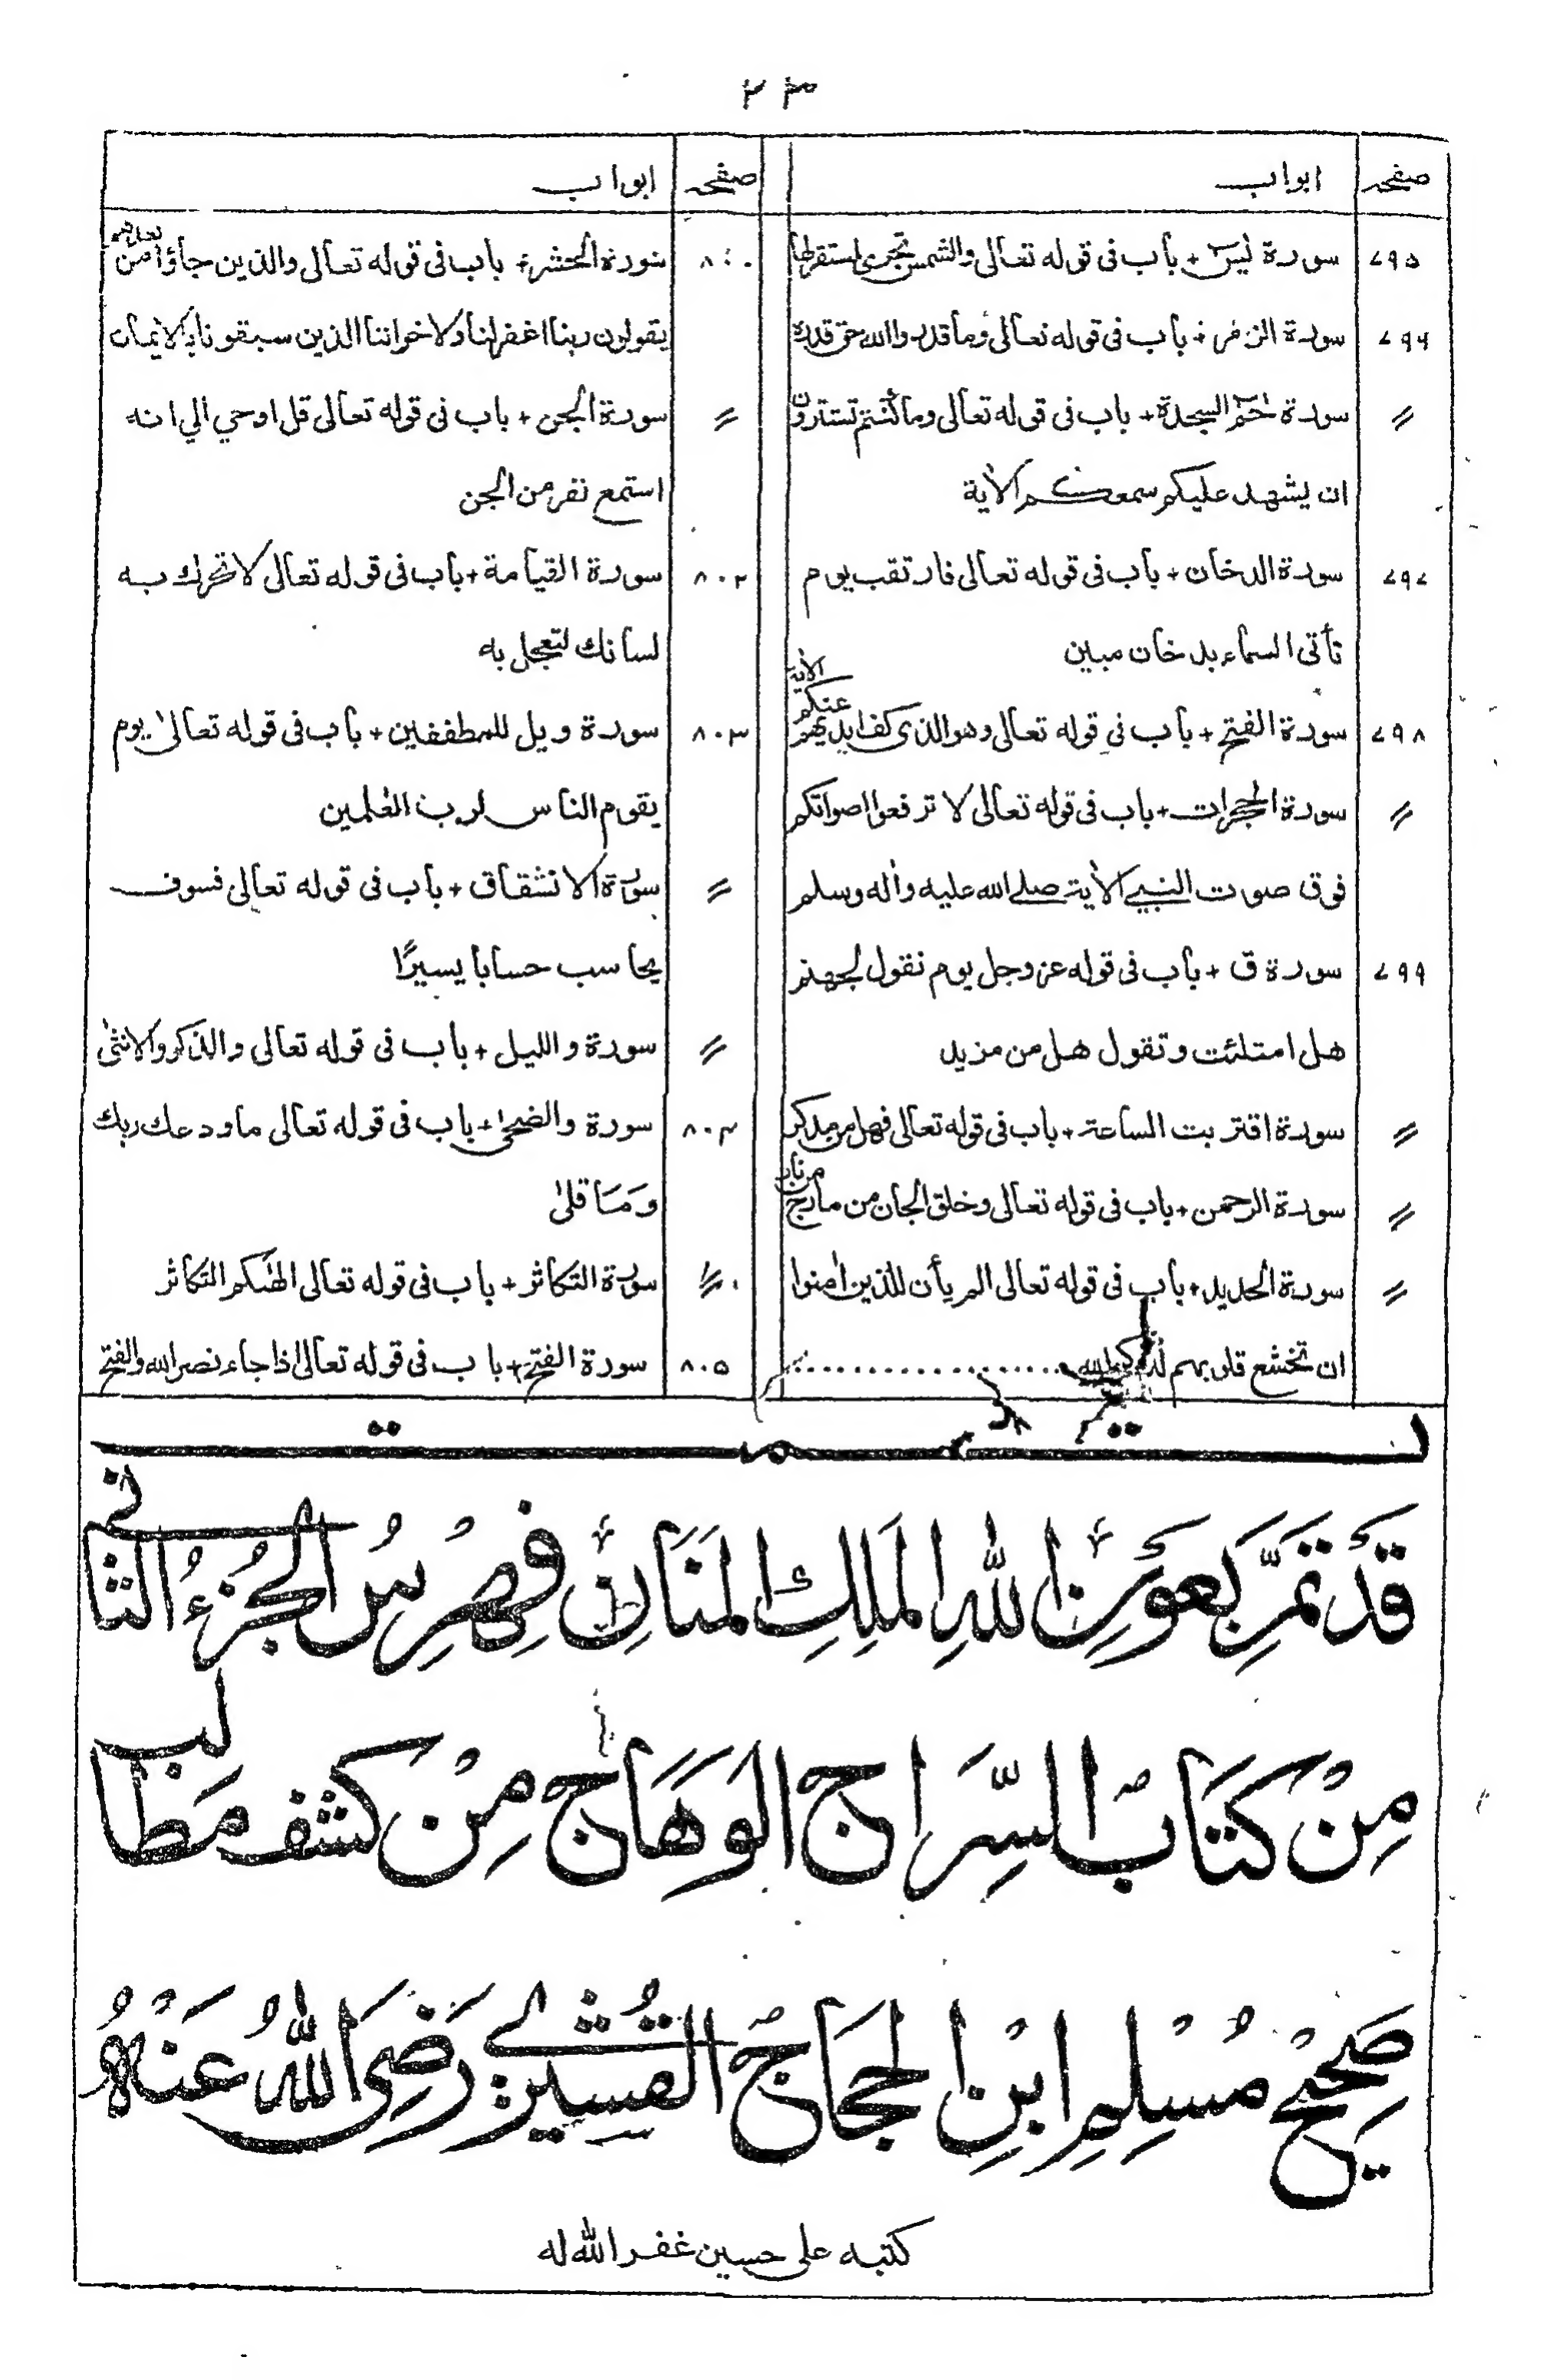 ٢٣
صفحہ ابواب
٧٩٥ سورة يٰسٓ + باب فى قوله تعالى والشمس تجرى لمستقر لها
٧٩٦ سورة الزمر + باب فى قوله تعالى وما قدروا الله حق قدره
〃 سورة حٰمٓ السجدة + باب فى قوله تعالى وما كنتم تستترون
ان يشهد عليكم سمعكم الأية
٧٩٧ سورة الدخان + باب فى قوله تعالى فارتقب يوم
تأتى السماء بدخان مبين
٧٩٨ سورة الفتح + باب فى قوله تعالى وهو الذى كف ايديهم عنكم الأية
〃 سورة الحجرات + باب فى قوله تعالى لا ترفعوا اصواتكم
فوق صوت النبي الأية صلى الله عليه وأله وسلم
٧٩٩ سورة ق + باب فى قوله عز وجل يوم نقول لجهنم
هل امتلئت وتقول هل من مزيد
〃 سورة اقتربت الساعة + باب فى قوله تعالى فهل من مدكر
〃 سورة الرحمن + باب فى قوله تعالى وخلق الجان من مارج من نار
〃 سورة الحديد + باب فى قوله تعالى الم يأن للذين أمنوا
ان تخشع قلوبهم لذكر الله
صفحہ ابواب
٨٠٠ سورة الحشر + باب فى قوله تعالى والذين جاؤا من بعدهم
يقولون ربنا اغفر لنا ولاخواننا الذين سبقونا بالايمان
〃 سورة الجن + باب فى قوله تعالى قل اوحي الي انه
استمع نفر من الجن
٨٠٢ سورة القيامة + باب فى قوله تعالى لا تحرك به
لسانك لتعجل به
٨٠٣ سورة ويل للمطففين + باب فى قوله تعالى يوم
يقوم الناس لرب العٰلمين
〃 سورة الانشقاق + باب فى قوله تعالى فسوف
يحاسب حسابا يسيرًا
〃 سورة والليل + باب فى قوله تعالى والذكر والانثٰى
٨٠٤ سورة والضحٰى + باب فى قوله تعالى ما ودعك ربك
وَمَا قلٰى
〃 سورة التكاثر + باب فى قوله تعالى الهٰىكم التكاثر
٨٠٥ سورة الفتح + باب فى قوله تعالى اذا جاء نصر الله والفتح
تمت
قَدْ تَمَّ بِعَوْنِ اللهِ الْمَلِكِ الْمَنَّانِ فِهْرِسُ الْجُزْءُ الثَّانِي
مِنْ كِتَابِ السِّرَاجِ الْوَهَّاجِ مِنْ كَشْفِ مَطَالِبِ
صَحِيْحِ مُسْلِمِ ابْنِ الْحَجَّاجِ الْقُشَيْرِيِّ رَضِيَ اللهُ عَنْهُ
كتبه على حسين غفر الله له